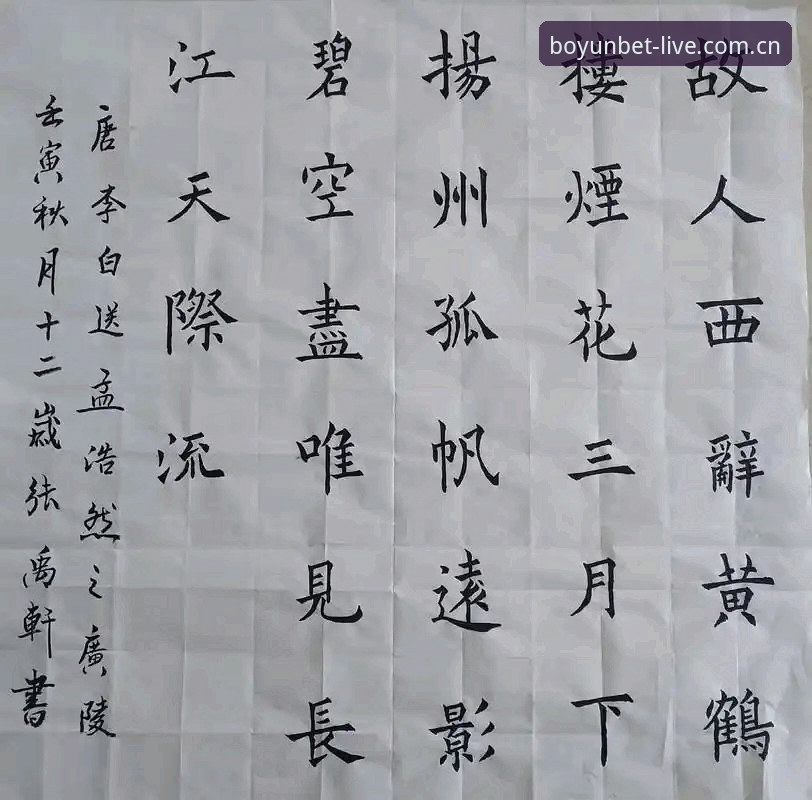 boyunbet-live.com.cn
故人西辭黃鶴
樓煙花三月下
揚州孤帆遠影
碧空盡唯見長
江天際流
唐李白送孟浩然之廣陵
壬寅秋月十二歲張禹軒書